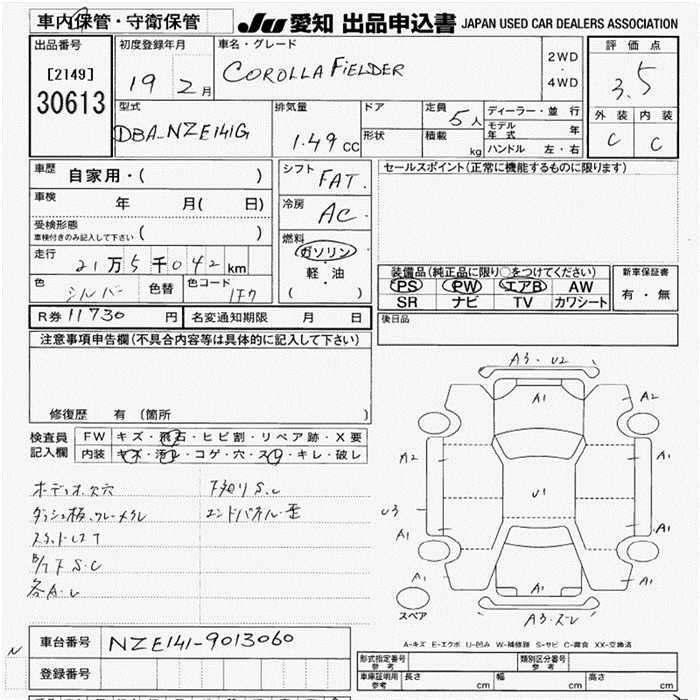 車内保管・守衛保管 JU 愛知 出品申込書 JAPAN USED CAR DEALERS ASSOCIATION
出品番号 初度登録年月 車名・グレード 評価点
[2149] 19 2月 COROLLA FIELDER 2WD・4WD 3.5
30613 外装 内装
C C
型式 排気量 ドア 定員 5人 ディーラー・並行
DBA-NZE141G 1.49cc 形状 積載 kg モデル年式 年
ハンドル 左・右
車歴 自家用・( ) シフト FAT. セールスポイント(正常に機能するものに限ります)
車検 年 月( 日) 冷房 AC
受検形態
車検付きのみ記入して下さい ( ) 燃料
走行 21万5千042km ガソリン
軽・油
( )
装備品(純正品に限り○をつけてください) 新車保証書
PS PW エアB AW 有・無
SR ナビ TV カワシート
色 シルバー 色替 色コード 1F7
R券 11730円 名変通知期限 月 日 後日品
注意事項申告欄(不具合内容等は具体的に記入して下さい)
修復歴 有(箇所 )
検査員 FW キズ・飛石・ヒビ割・リペア跡・X要
記入欄 内装 キズ・汚レ・コゲ・穴・スレ・キレ・破レ
ボディオ欠穴 下廻りS.C
ダッシュ板
エンドパネル歪
各A.U
A3・U2
A1 A2
A2 A1
U1
U3
A1 A1
A1 A1 A1
スペア A3・スレ
A-キズ E-エクボ U-凹み W-補修跡 S-サビ C-腐食 XX-交換済
車台番号 NZE141-9013060
N 登録番号
形式指定番号 参考 類別区分番号 参考
車庫証明用 参考 長さ cm 幅 cm 高さ cm